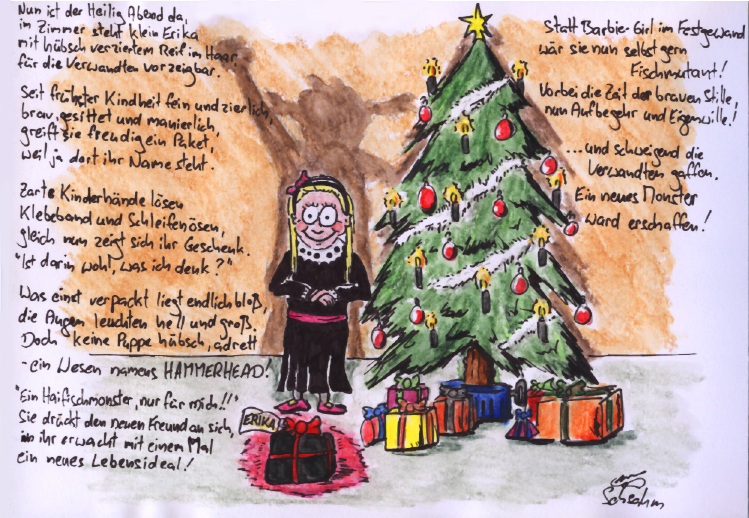 Nun ist der Heilig Abend da,
im Zimmer steht klein Erika
mit hübsch verziertem Reif im Haar,
für die Verwandten vorzeigbar.
Seit frühster Kindheit fein und zierlich,
brav, gesittet und manierlich,
greift sie freudig ein Paket,
weil ja dort ihr Name steht.
Zarte Kinderhände lösen
Klebeband und Schleifenösen,
gleich nun zeigt sich ihr Geschenk.
"Ist darin wohl, was ich denk?"
Was einst verpackt liegt endlich bloß,
die Augen leuchten hell und groß.
Doch keine Puppe hübsch, adrett
- ein Wesen namens HAMMERHEAD!
"Ein Haifischmonster, nur für mich!!"
Sie drückt den neuen Freund an sich,
in ihr erwacht mit einem Mal
ein neues Lebensideal!
Statt Barbie-Girl im Festgewand
wär sie nun selbst gern
Fischmutant!
Vorbei die Zeit der braven Stille,
nun Aufbegehr und Eigenwille!
...und schweigend die
Verwandten gaffen.
Ein neues Monster
ward erschaffen!
ERIKA